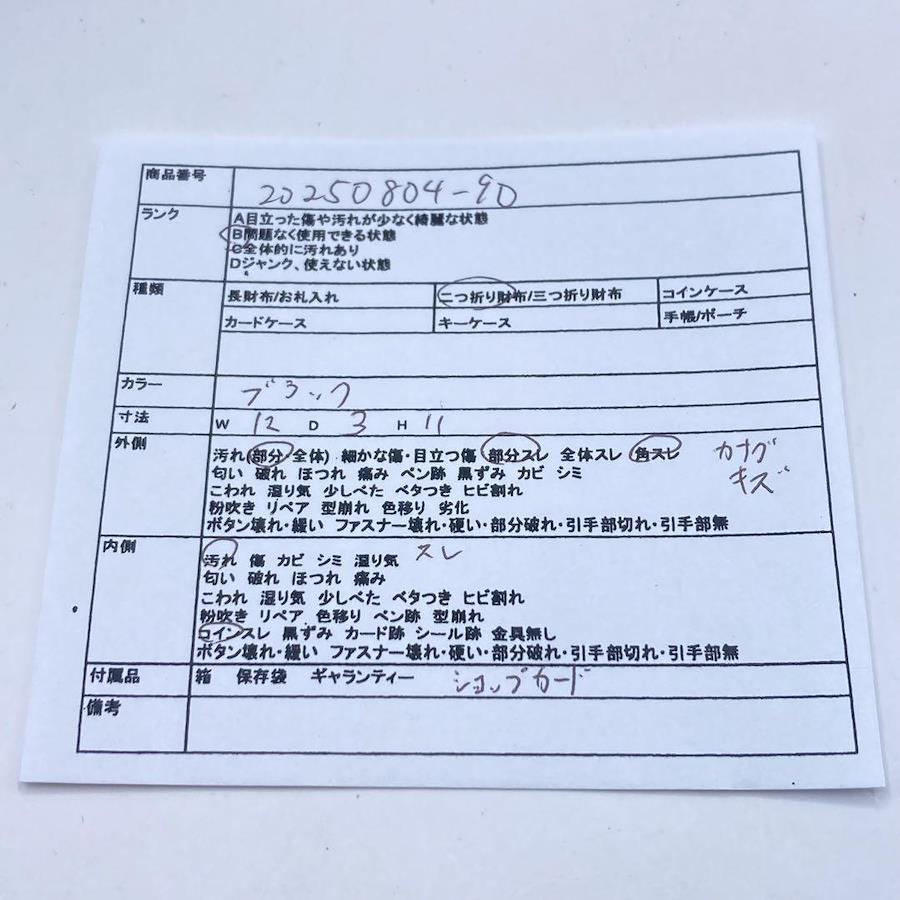 商品番号 20250804-90
ランク
A目立った傷や汚れが少なく綺麗な状態
B問題なく使用できる状態
C全体的に汚れあり
Dジャンク、使えない状態
種類
長財布/お札入れ 二つ折り財布/三つ折り財布 コインケース
カードケース キーケース 手帳/ポーチ
カラー ブラック
寸法 W 12 D 3 H 11
外側
汚れ(部分 全体) 細かな傷・目立つ傷 部分スレ 全体スレ 角スレ カナグ
匂い 破れ ほつれ 痛み ペン跡 黒ずみ カビ シミ キズ
こわれ 湿り気 少しべた ベタつき ヒビ割れ
粉吹き リペア 型崩れ 色移り 劣化
ボタン壊れ・緩い ファスナー壊れ・硬い・部分破れ・引手部切れ・引手部無
内側
汚れ 傷 カビ シミ 湿り気 スレ
匂い 破れ ほつれ 痛み
こわれ 湿り気 少しべた ベタつき ヒビ割れ
粉吹き リペア 色移り ペン跡 型崩れ
コインスレ 黒ずみ カード跡 シール跡 金具無し
ボタン壊れ・緩い ファスナー壊れ・硬い・部分破れ・引手部切れ・引手部無
付属品 箱 保存袋 ギャランティー ショップカード
備考